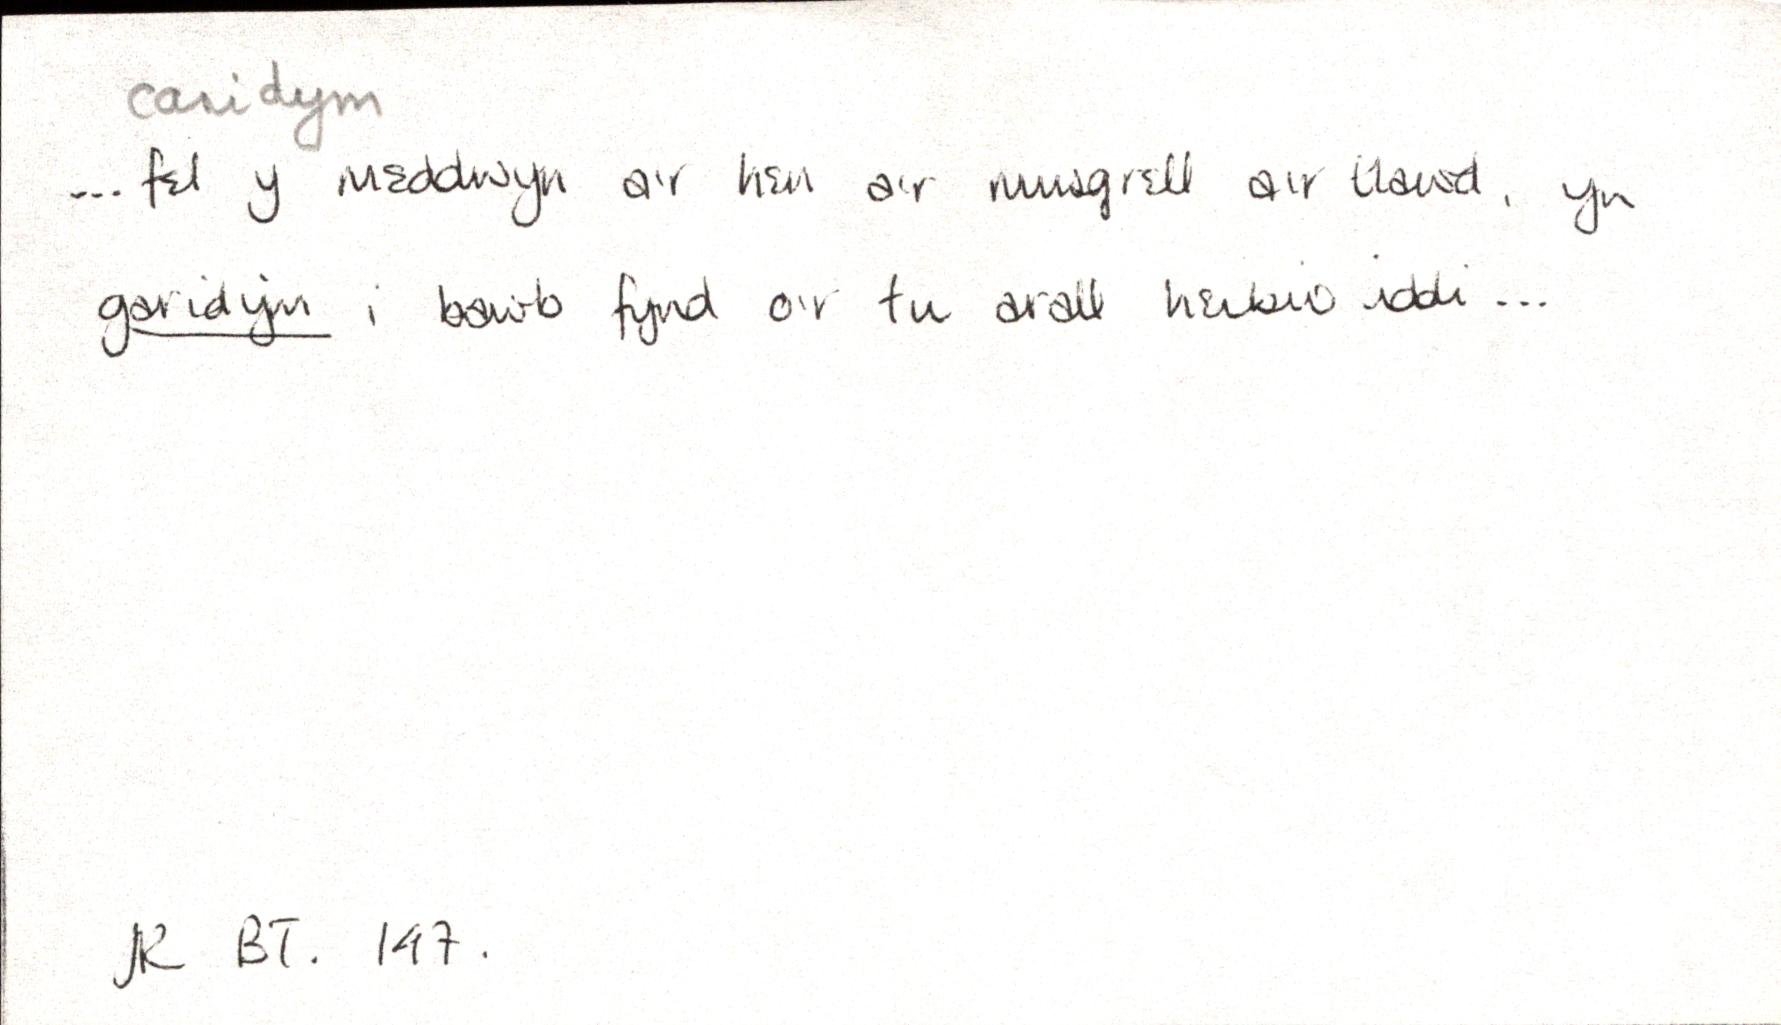 caridym
... fel y meddwyn a'r hen a'r musgrell a'r tlawd, yn
garidým i bawb fynd o'r tu arall heibio iddi ...
JR BT. 147.